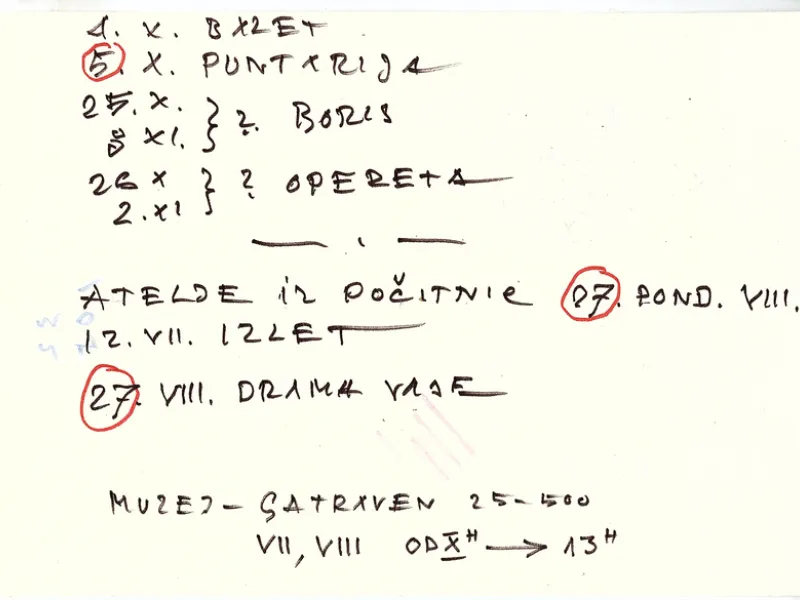 1. X. BALET
5. X. PUNTARIJA
25. X. } ?. BORIS
8 XI.
26 X } ? OPERETA
2. XI
ATELJE IZ POČITNIC 27. POND. VIII.
12. VII. IZLET
27. VIII. DRAMA VAJE
MUZEJ – ŞATRAVEN 25–500
VII, VIII OD X H → 13 H